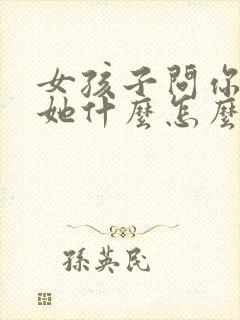 女孩子問你
她什麼怎麼
孫英民